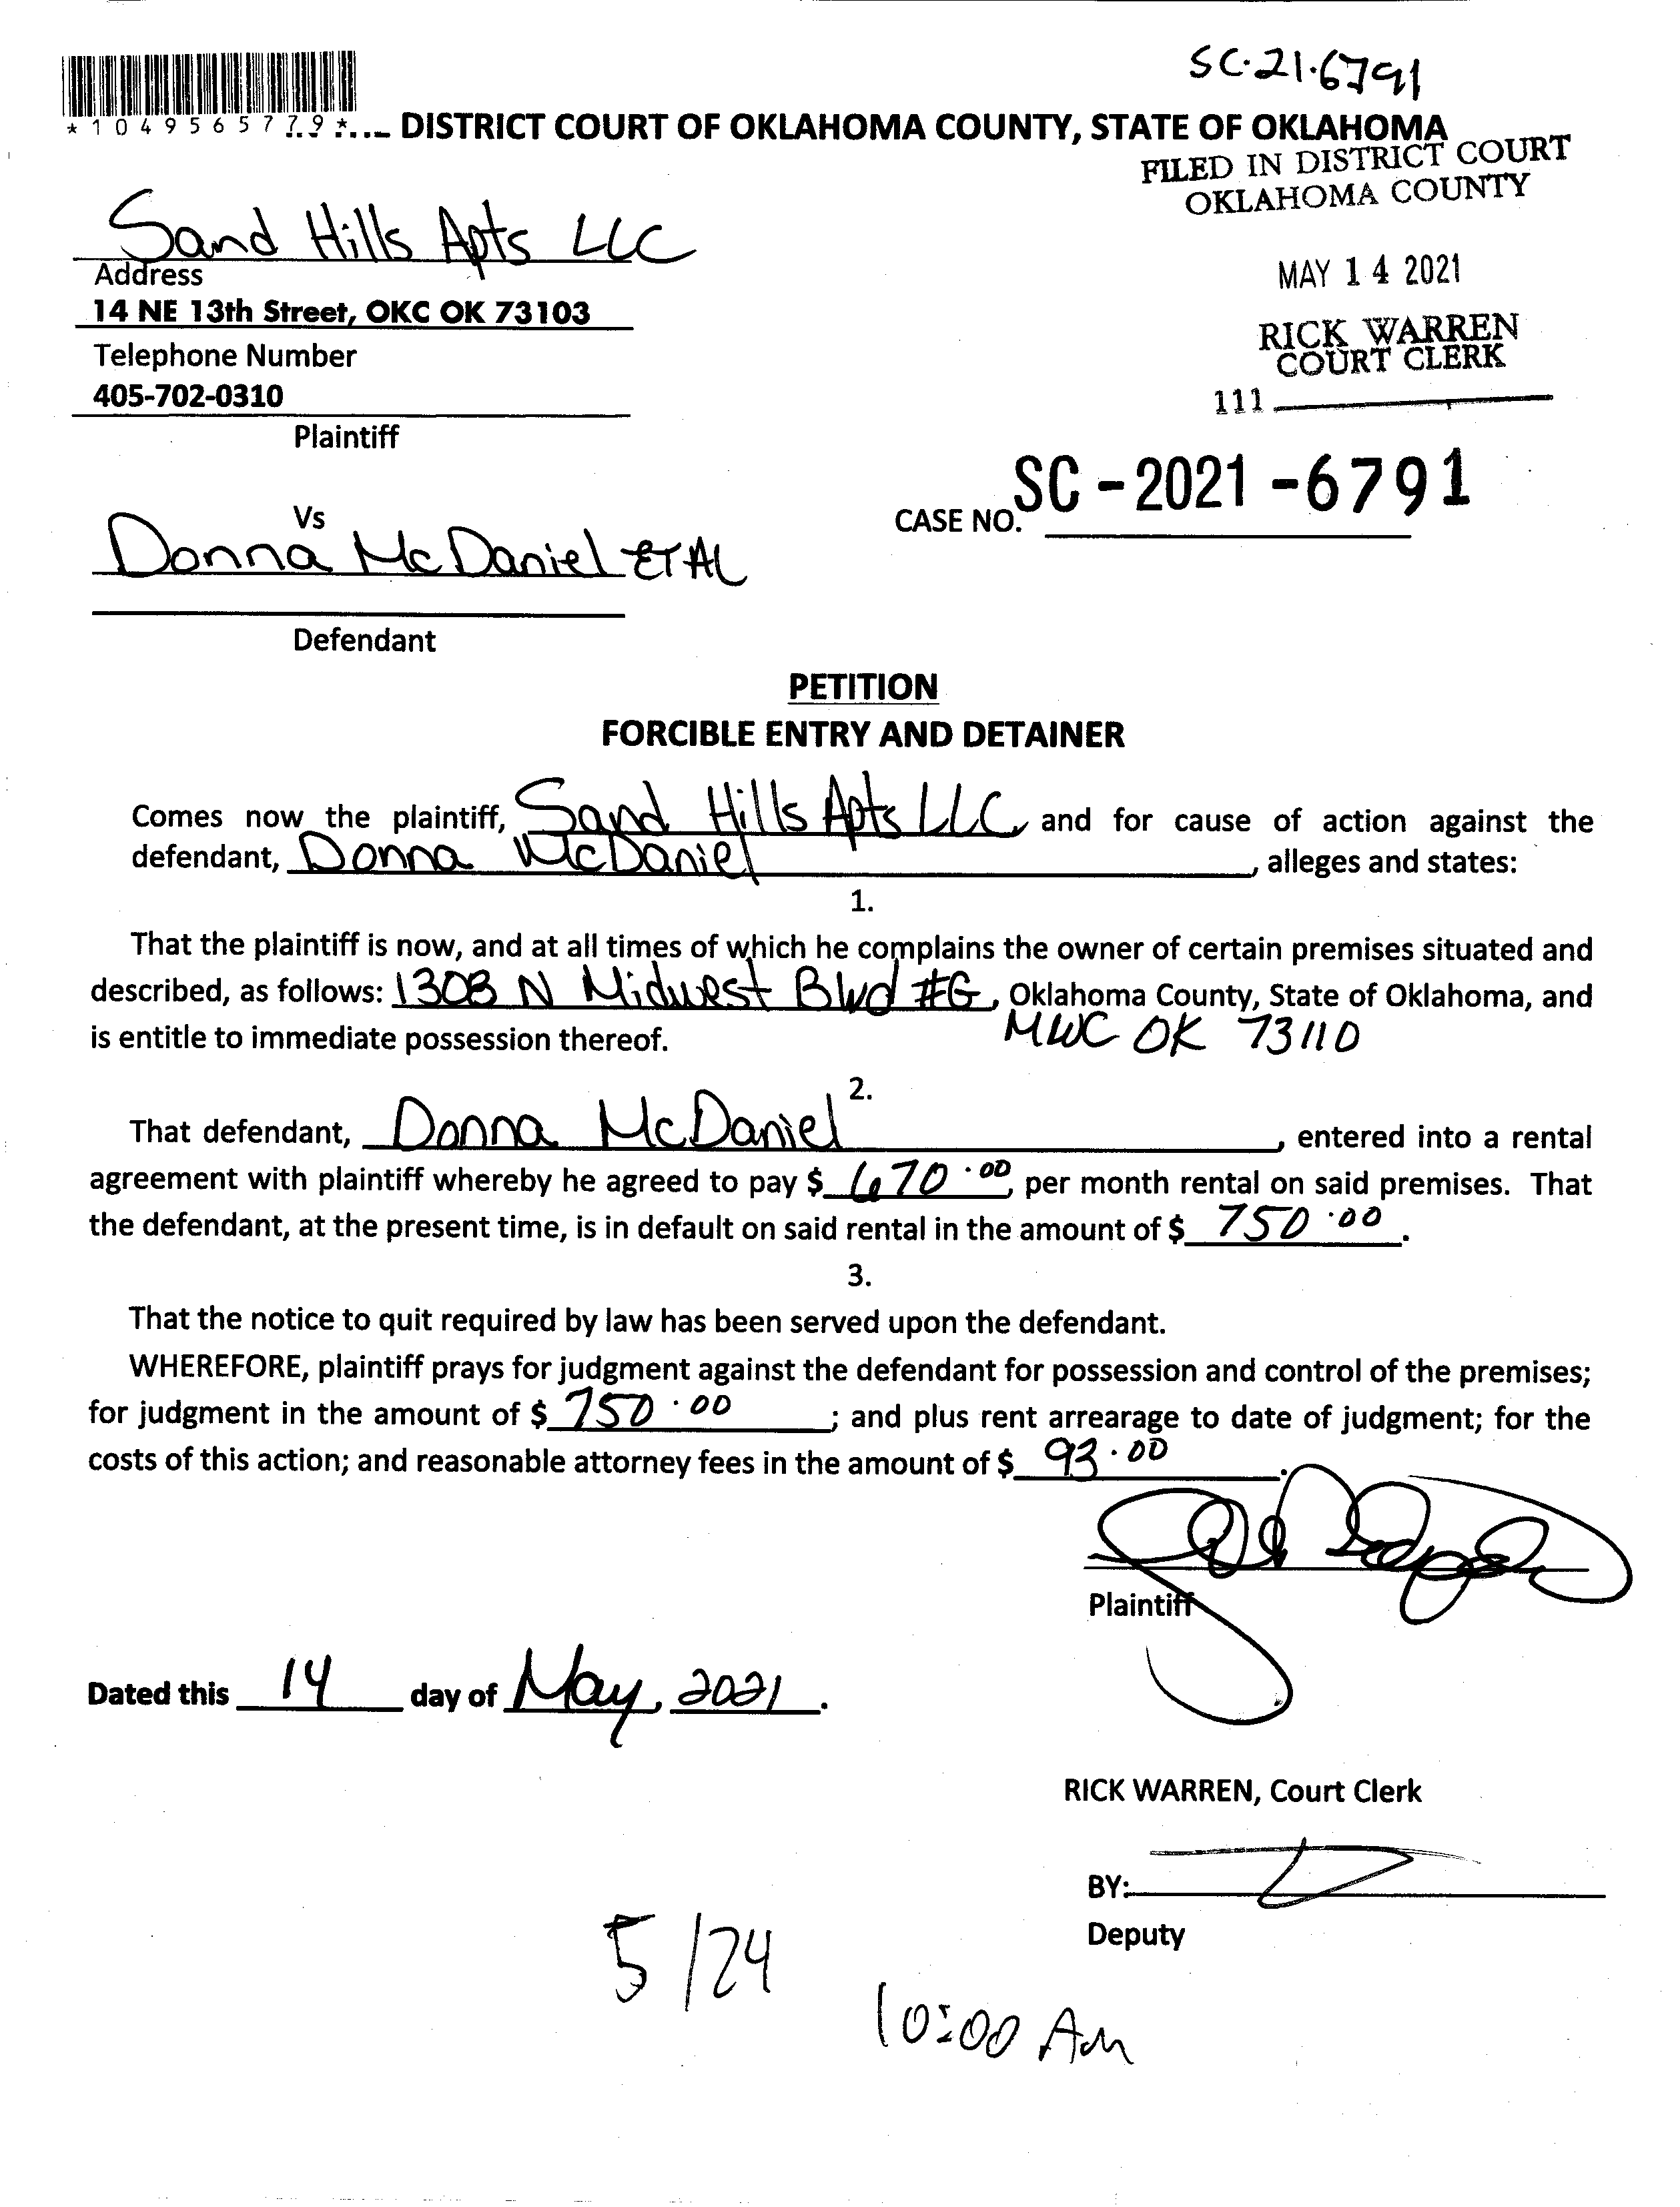 SC·21·6791
*1049565779*
DISTRICT COURT OF OKLAHOMA COUNTY, STATE OF OKLAHOMA
FILED IN DISTRICT COURT
OKLAHOMA COUNTY
Sand Hills Apts LLC
Address
14 NE 13th Street, OKC OK 73103
MAY 14 2021
Telephone Number
RICK WARREN
COURT CLERK
405-702-0310
111
Plaintiff
SC-2021-6791
CASE NO.
Vs
Donna McDaniel ET AL
Defendant
PETITION
FORCIBLE ENTRY AND DETAINER
Comes now the plaintiff, Sand Hills Apts LLC, and for cause of action against the
defendant, Donna McDaniel, alleges and states:
1.
That the plaintiff is now, and at all times of which he complains the owner of certain premises situated and
described, as follows: 1308 N Midwest Blvd #G, Oklahoma County, State of Oklahoma, and
is entitle to immediate possession thereof. MWC OK 73110
2.
That defendant, Donna McDaniel, entered into a rental
agreement with plaintiff whereby he agreed to pay $ 670.00, per month rental on said premises. That
the defendant, at the present time, is in default on said rental in the amount of $ 750.00.
3.
That the notice to quit required by law has been served upon the defendant.
WHEREFORE, plaintiff prays for judgment against the defendant for possession and control of the premises;
for judgment in the amount of $ 750.00; and plus rent arrearage to date of judgment; for the
costs of this action; and reasonable attorney fees in the amount of $ 93.00.
Plaintiff
Dated this 14 day of May, 2021.
RICK WARREN, Court Clerk
BY:
Deputy
5/24
10:00 AM